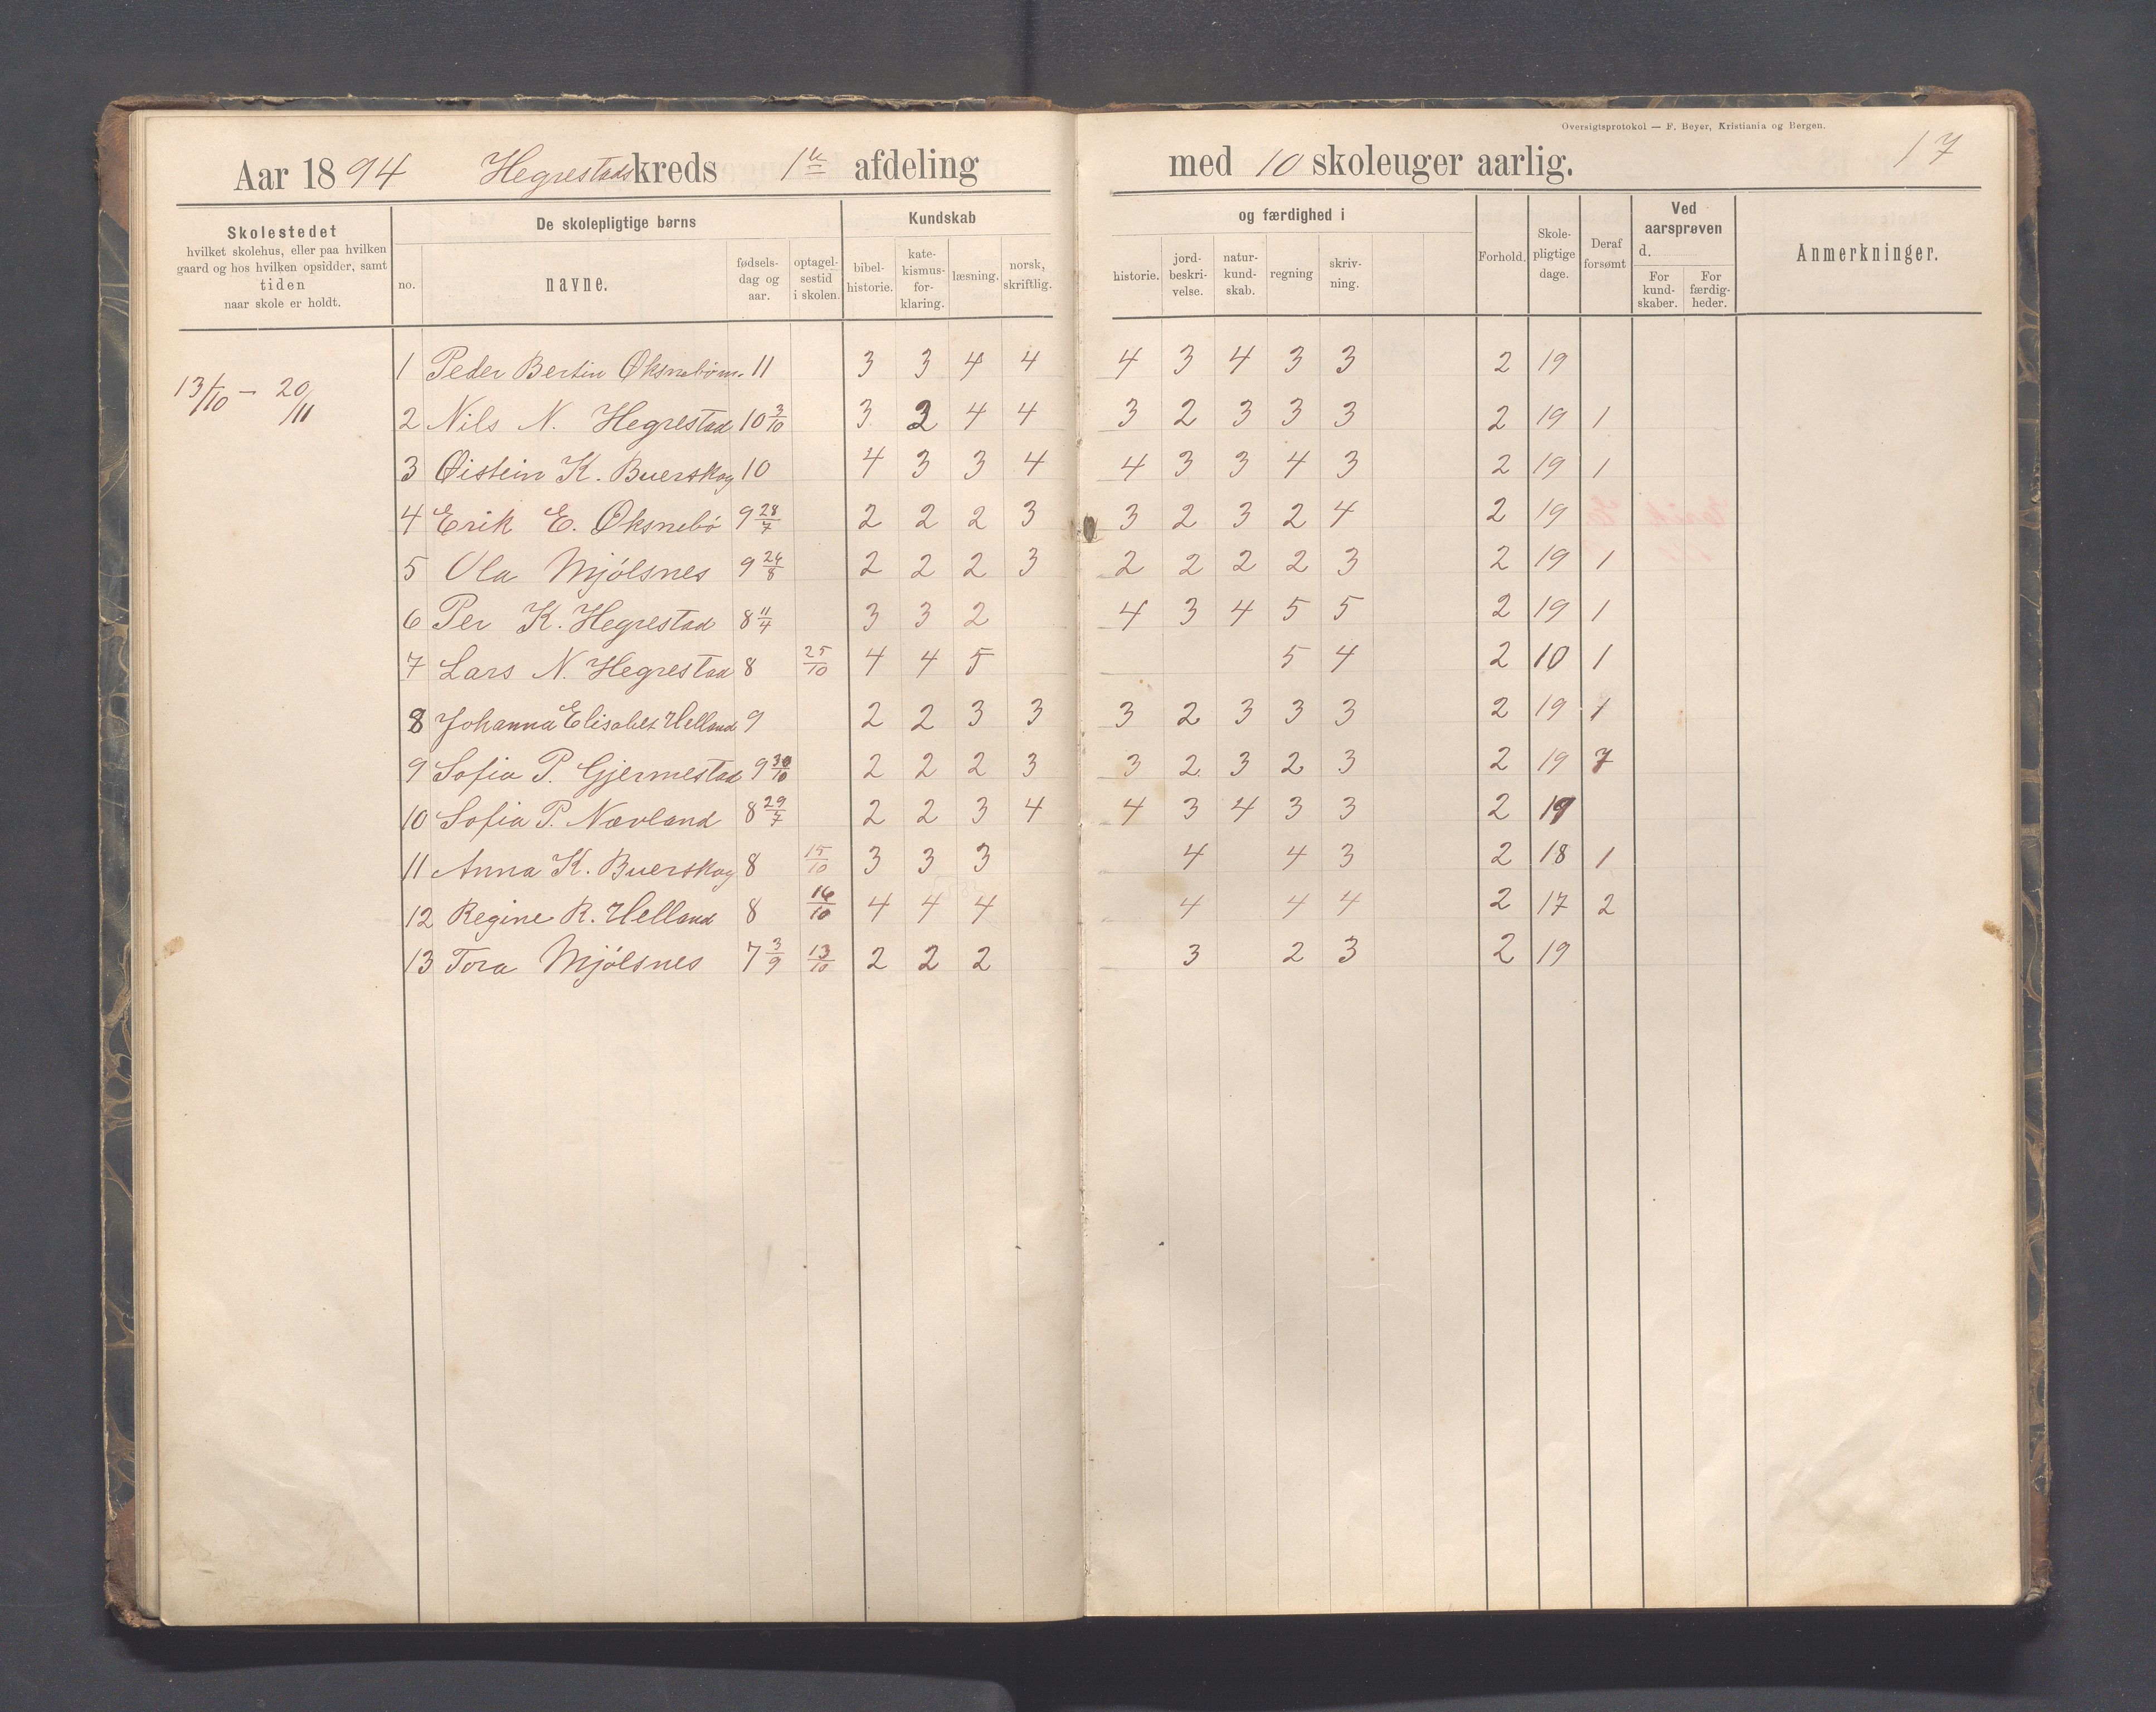 Oversigtsprotokol — F. Beyer, Kristiania og Bergen.
17
Aar 1894 Hegrestads kreds 1te afdeling med 10 skoleuger aarlig.
Skolestedet hvilket skolehus, eller paa hvilken gaard og hos hvilken opsidder, samt tiden naar skole er holdt.
De skolepligtige børns
no. navne. fødselsdag og aar. optagelsestid i skolen.
Kundskab og færdighed i
bibelhistorie. katekismusforklaring. læsning. norsk, skriftlig. historie. jordbeskrivelse. naturkundskab. regning skrivning.
Forhold. Skolepligtige dage. Deraf forsømt
Ved aarsprøven d.
For kundskaber. For færdigheder.
Anmerkninger.
13/10 – 20/11
1 Peder Bertin Øksnebøm. 11 3 3 4 4 4 3 4 3 3 2 19
2 Nils N. Hegrestad 10 3/10 3 3 4 4 3 2 3 3 3 2 19 1
3 Øistein K. Buerskog 10 4 3 3 4 4 3 3 4 3 2 19 1
4 Erik E. Øksnebö 9 28/7 2 2 2 3 3 2 3 2 4 2 19
5 Ola Mjölsnes 9 24/8 2 2 2 3 2 2 2 2 3 2 19 1
6 Per K. Hegrestad 8 11/4 3 3 2 4 3 4 5 5 2 19 1
7 Lars N. Hegrestad 8 25/10 4 4 5 5 4 2 10 1
8 Johanna Elisabet Helland 9 2 2 3 3 3 2 3 3 3 2 19 1
9 Sofia P. Gjermestad 9 30/10 2 2 2 3 3 2 3 2 3 2 19 7
10 Sofia P. Nævland 8 29/7 2 2 3 4 4 3 4 3 3 2 19
11 Anna K. Buerskog 8 15/10 3 3 3 4 4 3 2 18 1
12 Regine R. Helland 8 16/10 4 4 4 4 4 4 2 17 2
13 Tora Mjölsnes 7 3/9 13/10 2 2 2 3 2 3 2 19